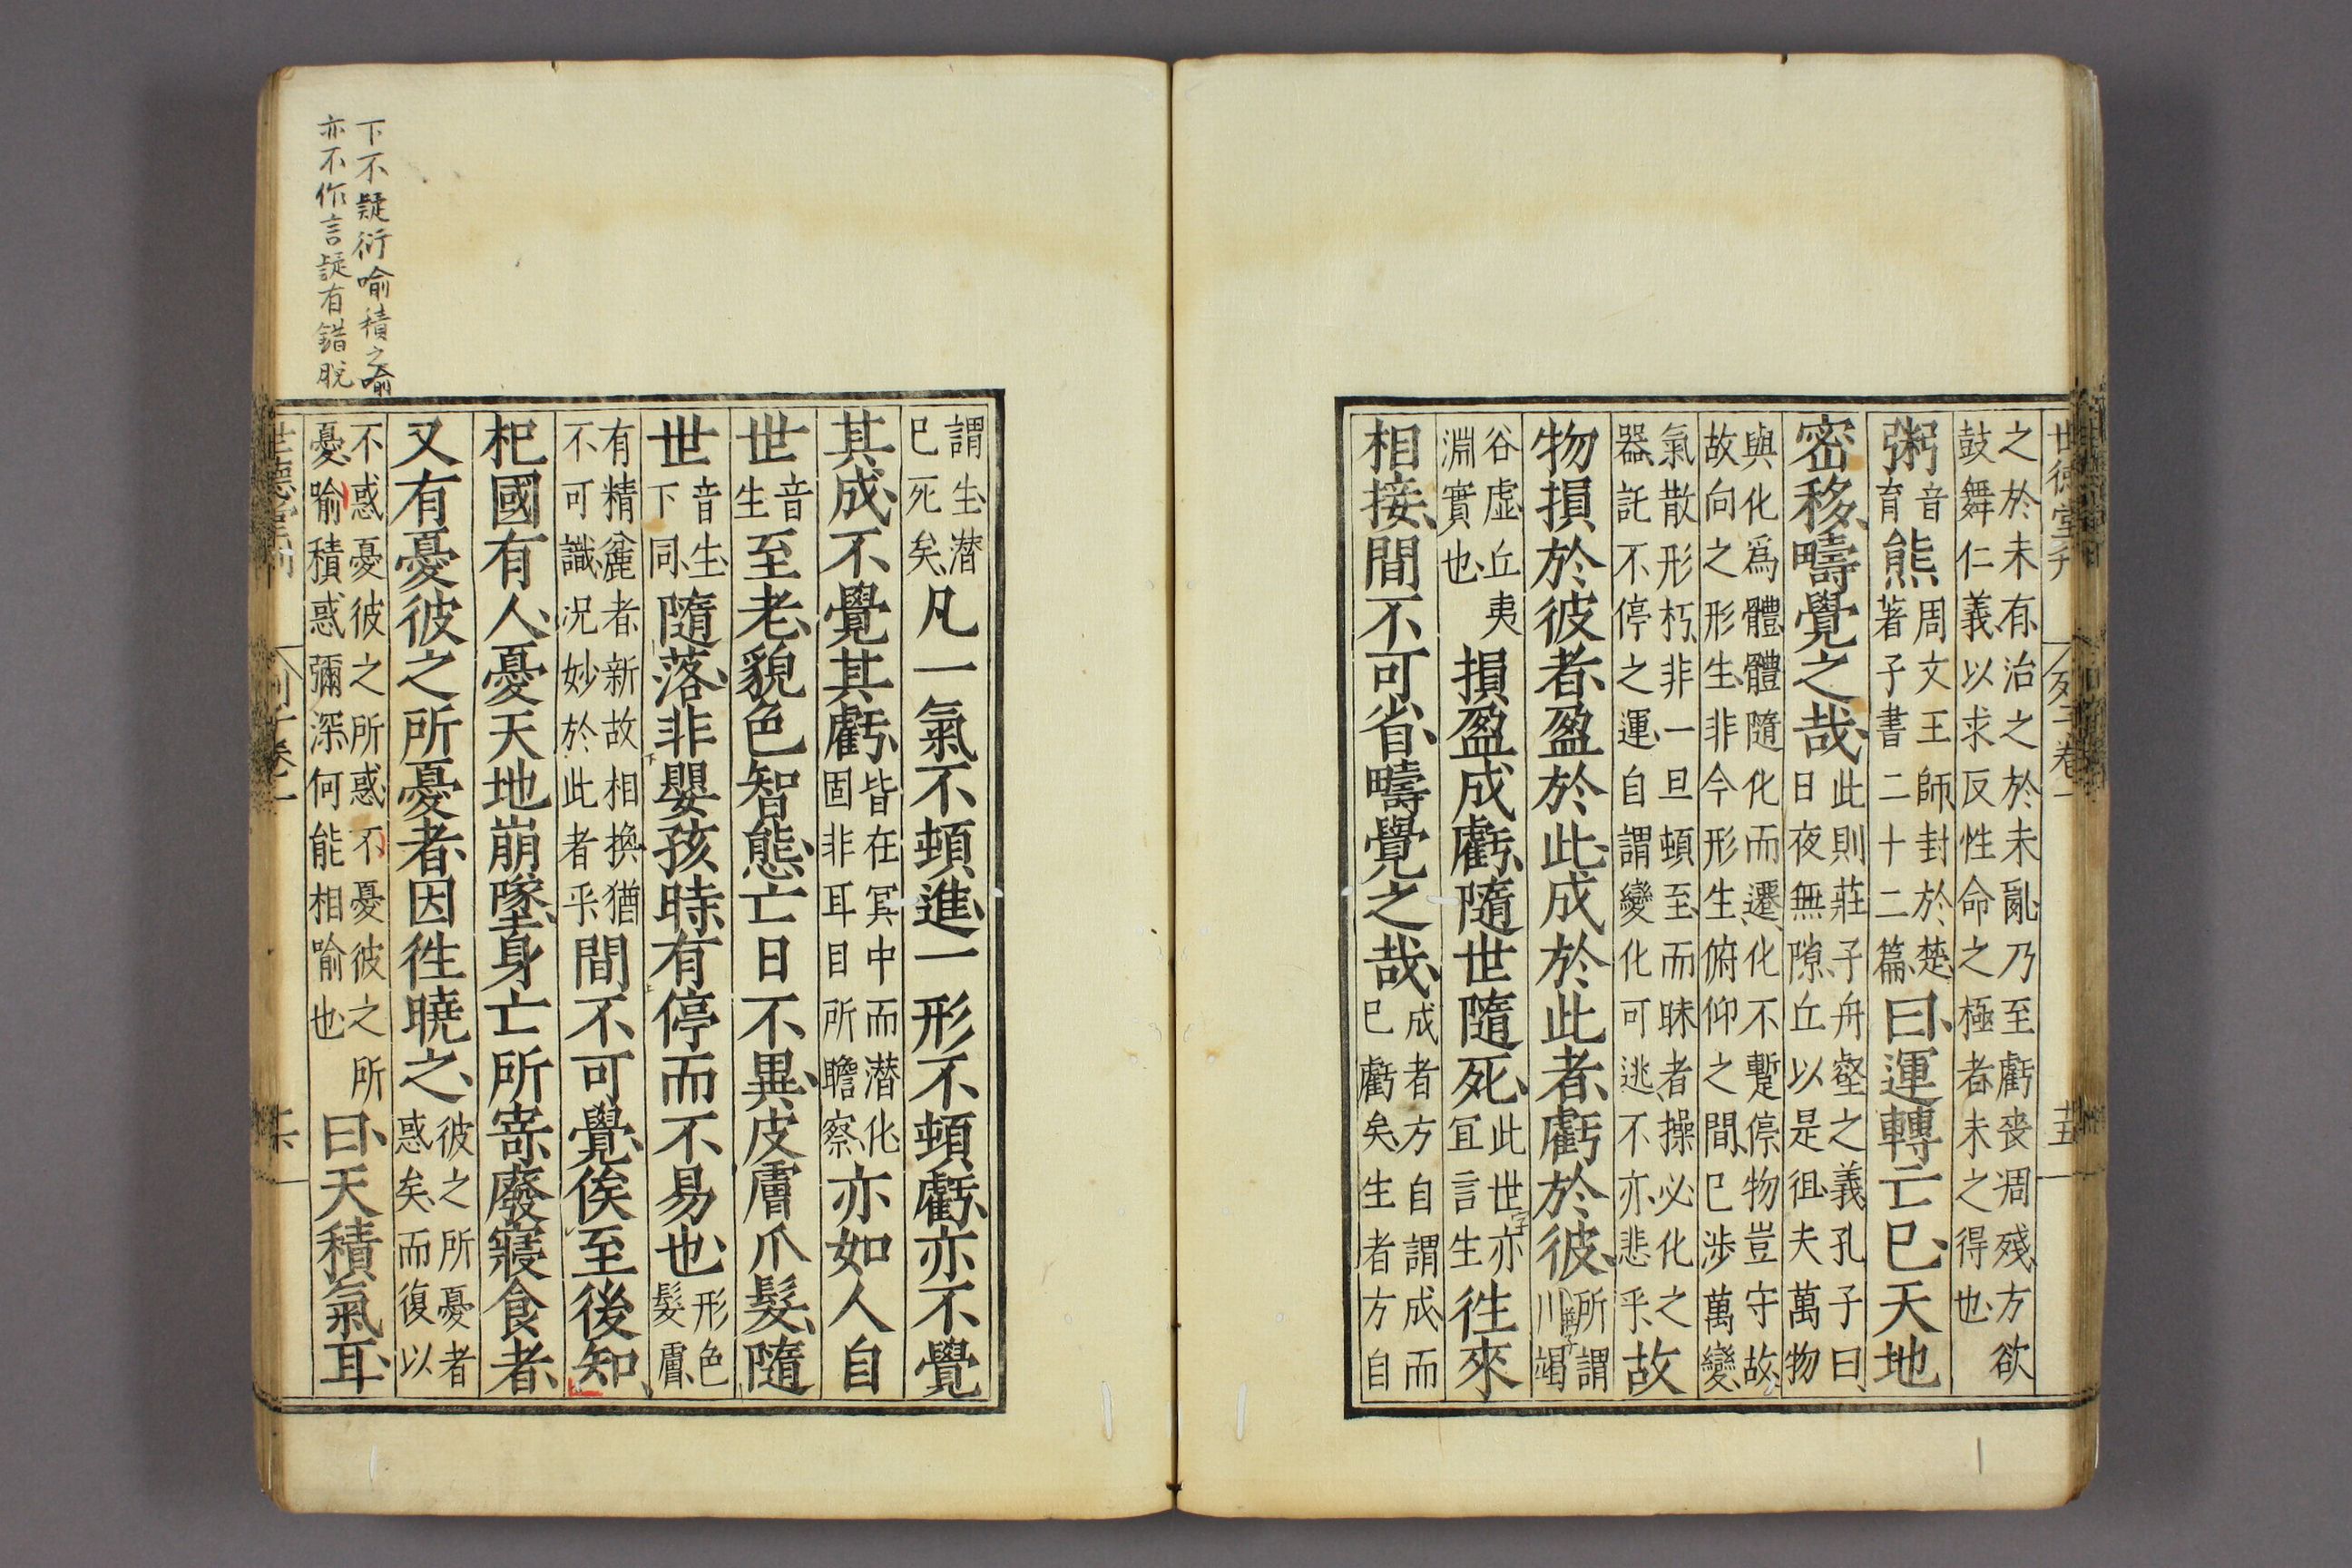 世德堂刊
列子卷一
十五
之於未有治之於未亂乃至虧喪凋殘方欲
鼓舞仁義以求反性命之極者未之得也
粥音育熊周文王師封於楚著子書二十二篇曰運轉亡已天地
密移疇覺之哉此則莊子舟壑之義孔子曰日夜無隙丘以是徂夫萬物
與化爲體體隨化而遷化不蹔停物豈守故
故向之形生非今形生俯仰之間已涉萬變
氣散形朽非一旦頓至而昧者操必化之器託不停之運自謂變化可逃不亦悲乎故
物損於彼者盈於此成於此者虧於彼所謂川竭
谷虛丘夷淵實也損盈成虧隨世隨死此世亦宜言生往來
字
莊子
相接間不可省疇覺之哉成者方自謂成而已虧矣生者方自
謂生潜已死矣凡一氣不頓進一形不頓虧亦不覺
其成不覺其虧皆在冥中而潜化固非耳目所瞻察亦如人自
世音生至老貌色智態亡日不異皮膚爪髮隨
世音生下同隨落非嬰孩時有停而不易也形色髮膚
有精麄者新故相換猶不可識況妙於此者乎間不可覺俟至後知
杞國有人憂天地崩墜身亡所寄廢寢食者
又有憂彼之所憂者因往曉之彼之所憂者惑矣而復以
不惑憂彼之所惑不憂彼之所憂喻積惑彌深何能相喻也曰天積氣耳
下不疑衍喻積之喻
亦不作言疑有錯脫